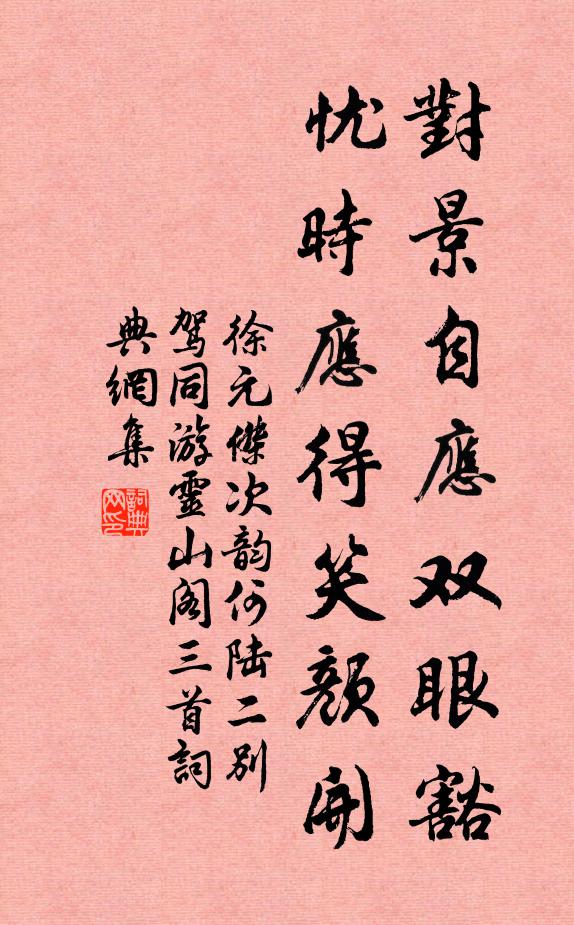 對景自應双眼豁
忧時應得笑顏開
徐元傑次韵何陆二别
驾同游靈山阁三首詞
典網集
詞典网印